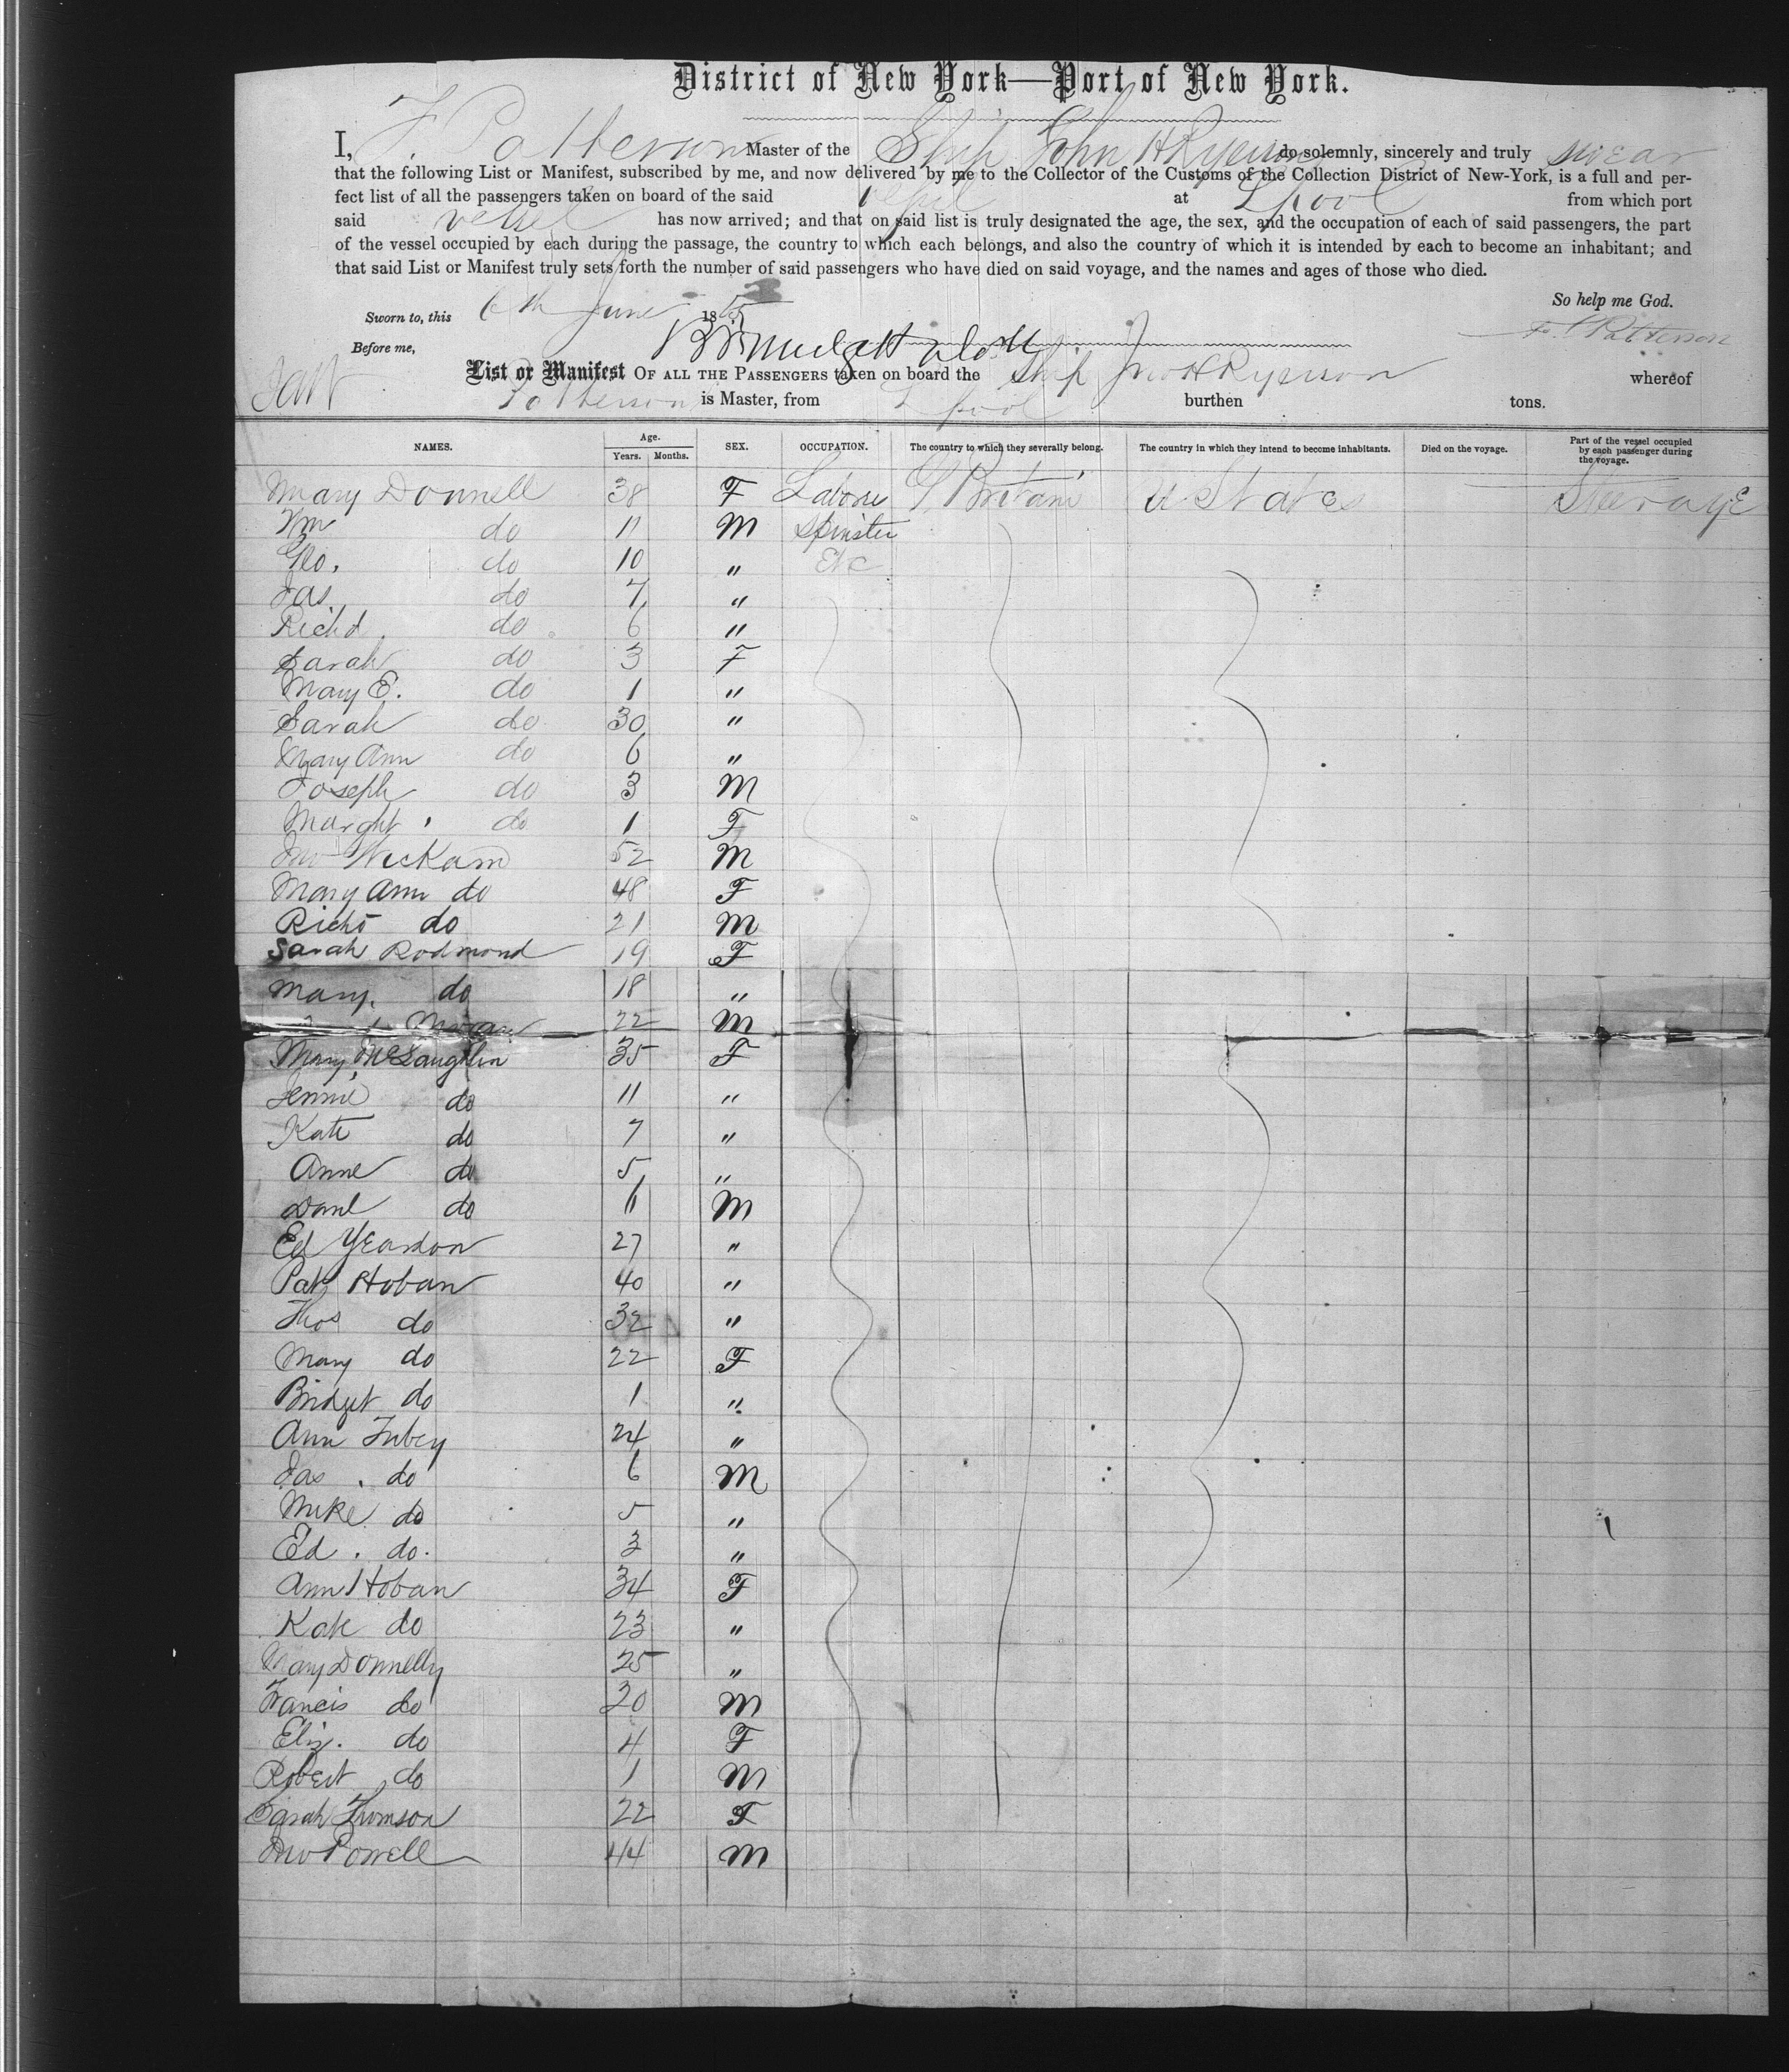 District of New York—Port of New York.
I, F. Patterson Master of the Ship John H Ryerson do solemnly, sincerely and truly swear
that the following List or Manifest, subscribed by me, and now delivered by me to the Collector of the Customs of the Collection District of New-York, is a full and per-
fect list of all the passengers taken on board of the said vessel at Lpool from which port
said vessel has now arrived; and that on said list is truly designated the age, the sex, and the occupation of each of said passengers, the part
of the vessel occupied by each during the passage, the country to which each belongs, and also the country of which it is intended by each to become an inhabitant; and
that said List or Manifest truly sets forth the number of said passengers who have died on said voyage, and the names and ages of those who died.
So help me God.
Sworn to, this 6th June 186
Patterson
Before me,
List or Manifest OF ALL THE PASSENGERS taken on board the Ship Jno H Ryerson whereof
Patterson is Master, from Lpool burthen tons.
NAMES. Age. Years. Months. SEX. OCCUPATION. The country to which they severally belong. The country in which they intend to become inhabitants. Died on the voyage. Part of the vessel occupied by each passenger during the voyage.
Mary Donnell 38 F Labore G Britain U States Steerage
Wm do 11 M Spinster
Geo. do 10 " Etc
Jas. do 7 "
Richd. do 6 "
Sarah do 3 F
Mary E. do 1 "
Sarah do 30 "
Mary Ann do 6 "
Joseph do 3 M
Marght do 1 F
Jno Wickam 52 M
Mary Ann do 48 F
Richd do 21 M
Sarah Rodmond 19 F
Mary. do 18 "
22 M
Mary McLaughlin 35 F
Jennie do 11 "
Kate do 7 "
Anne do 5 "
Danl do M
Ed Yeardon 27 "
Pat Hoban 40 "
Thos do 32 "
Mary do 22 F
Bridget do 1 "
Ann Tubey 24 "
Jas. do 6 M
Mike do 5 "
Ed. do. 3 "
Ann Hoban 34 F
Kate do 23 "
Mary Donnelly 25 "
Francis do 20 M
Eliz. do 4 F
Robert do 1 M
Sarah Thomson 22 F
Jno Powell 44 M